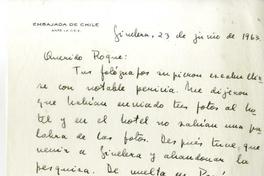 EMBAJADA DE CHILE
Ginebra, 23 de junio de 1963.
Querido Roque:
Tus fotógrafos supieron escabullirse
con notable pericia. Me dijeron
que habían enviado tres fotos al ho
tel y en el hotel no sabían una pa
labra de las fotos. Después tuve que
venir a Ginebra y abandonar la
pesquisa. De vuelta en